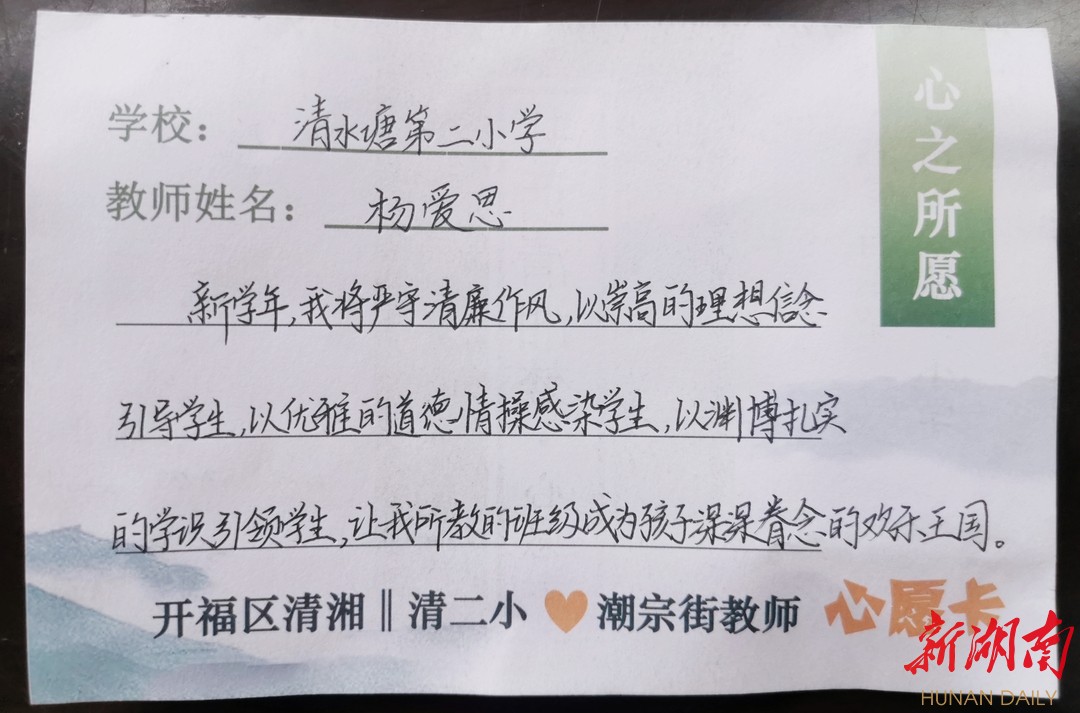 心之所愿
学校：清水塘第二小学
教师姓名：杨爱思
新学年，我将严守清廉作风，以崇高的理想信念
引导学生，以优雅的道德情操感染学生，以渊博扎实
的学识引领学生，让我所教的班级成为孩子深深眷念的欢乐王国。
开福区清湘‖清二小 潮宗街教师 心愿卡
新湖南
HUNAN DAILY